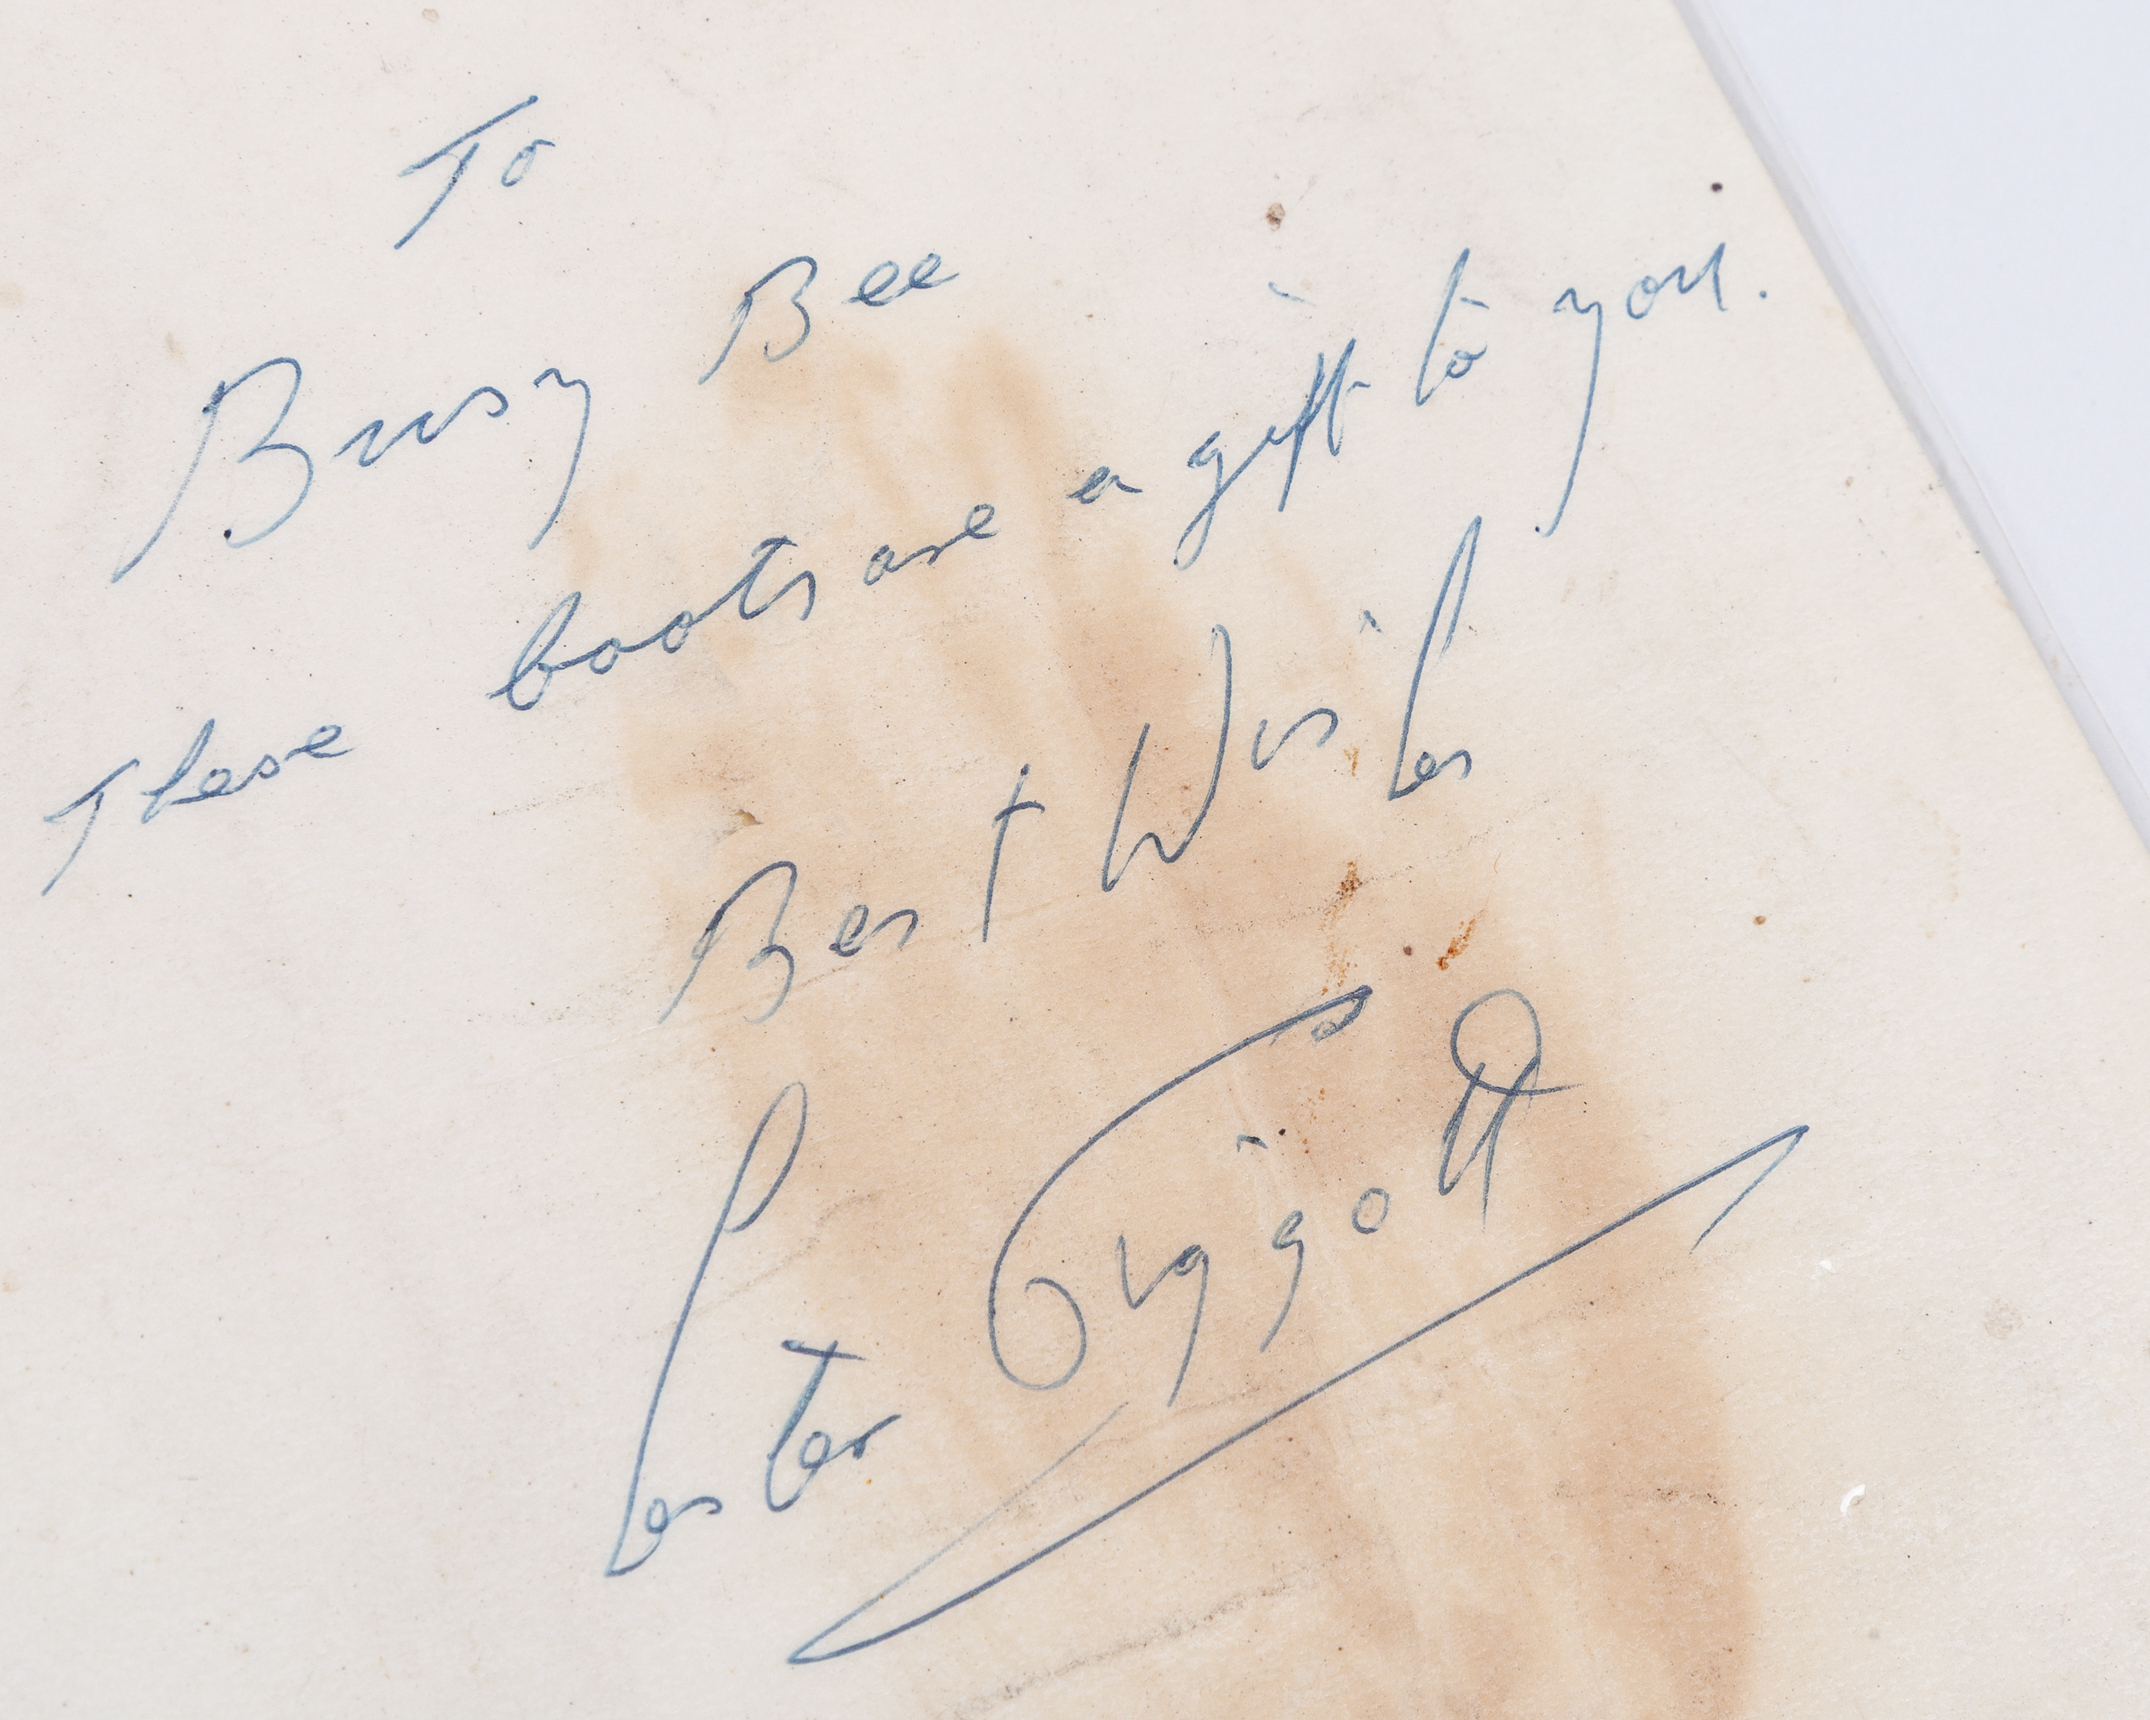 To
Busy Bee
These boots are a gift to you.
Best Wishes
Lester Piggott